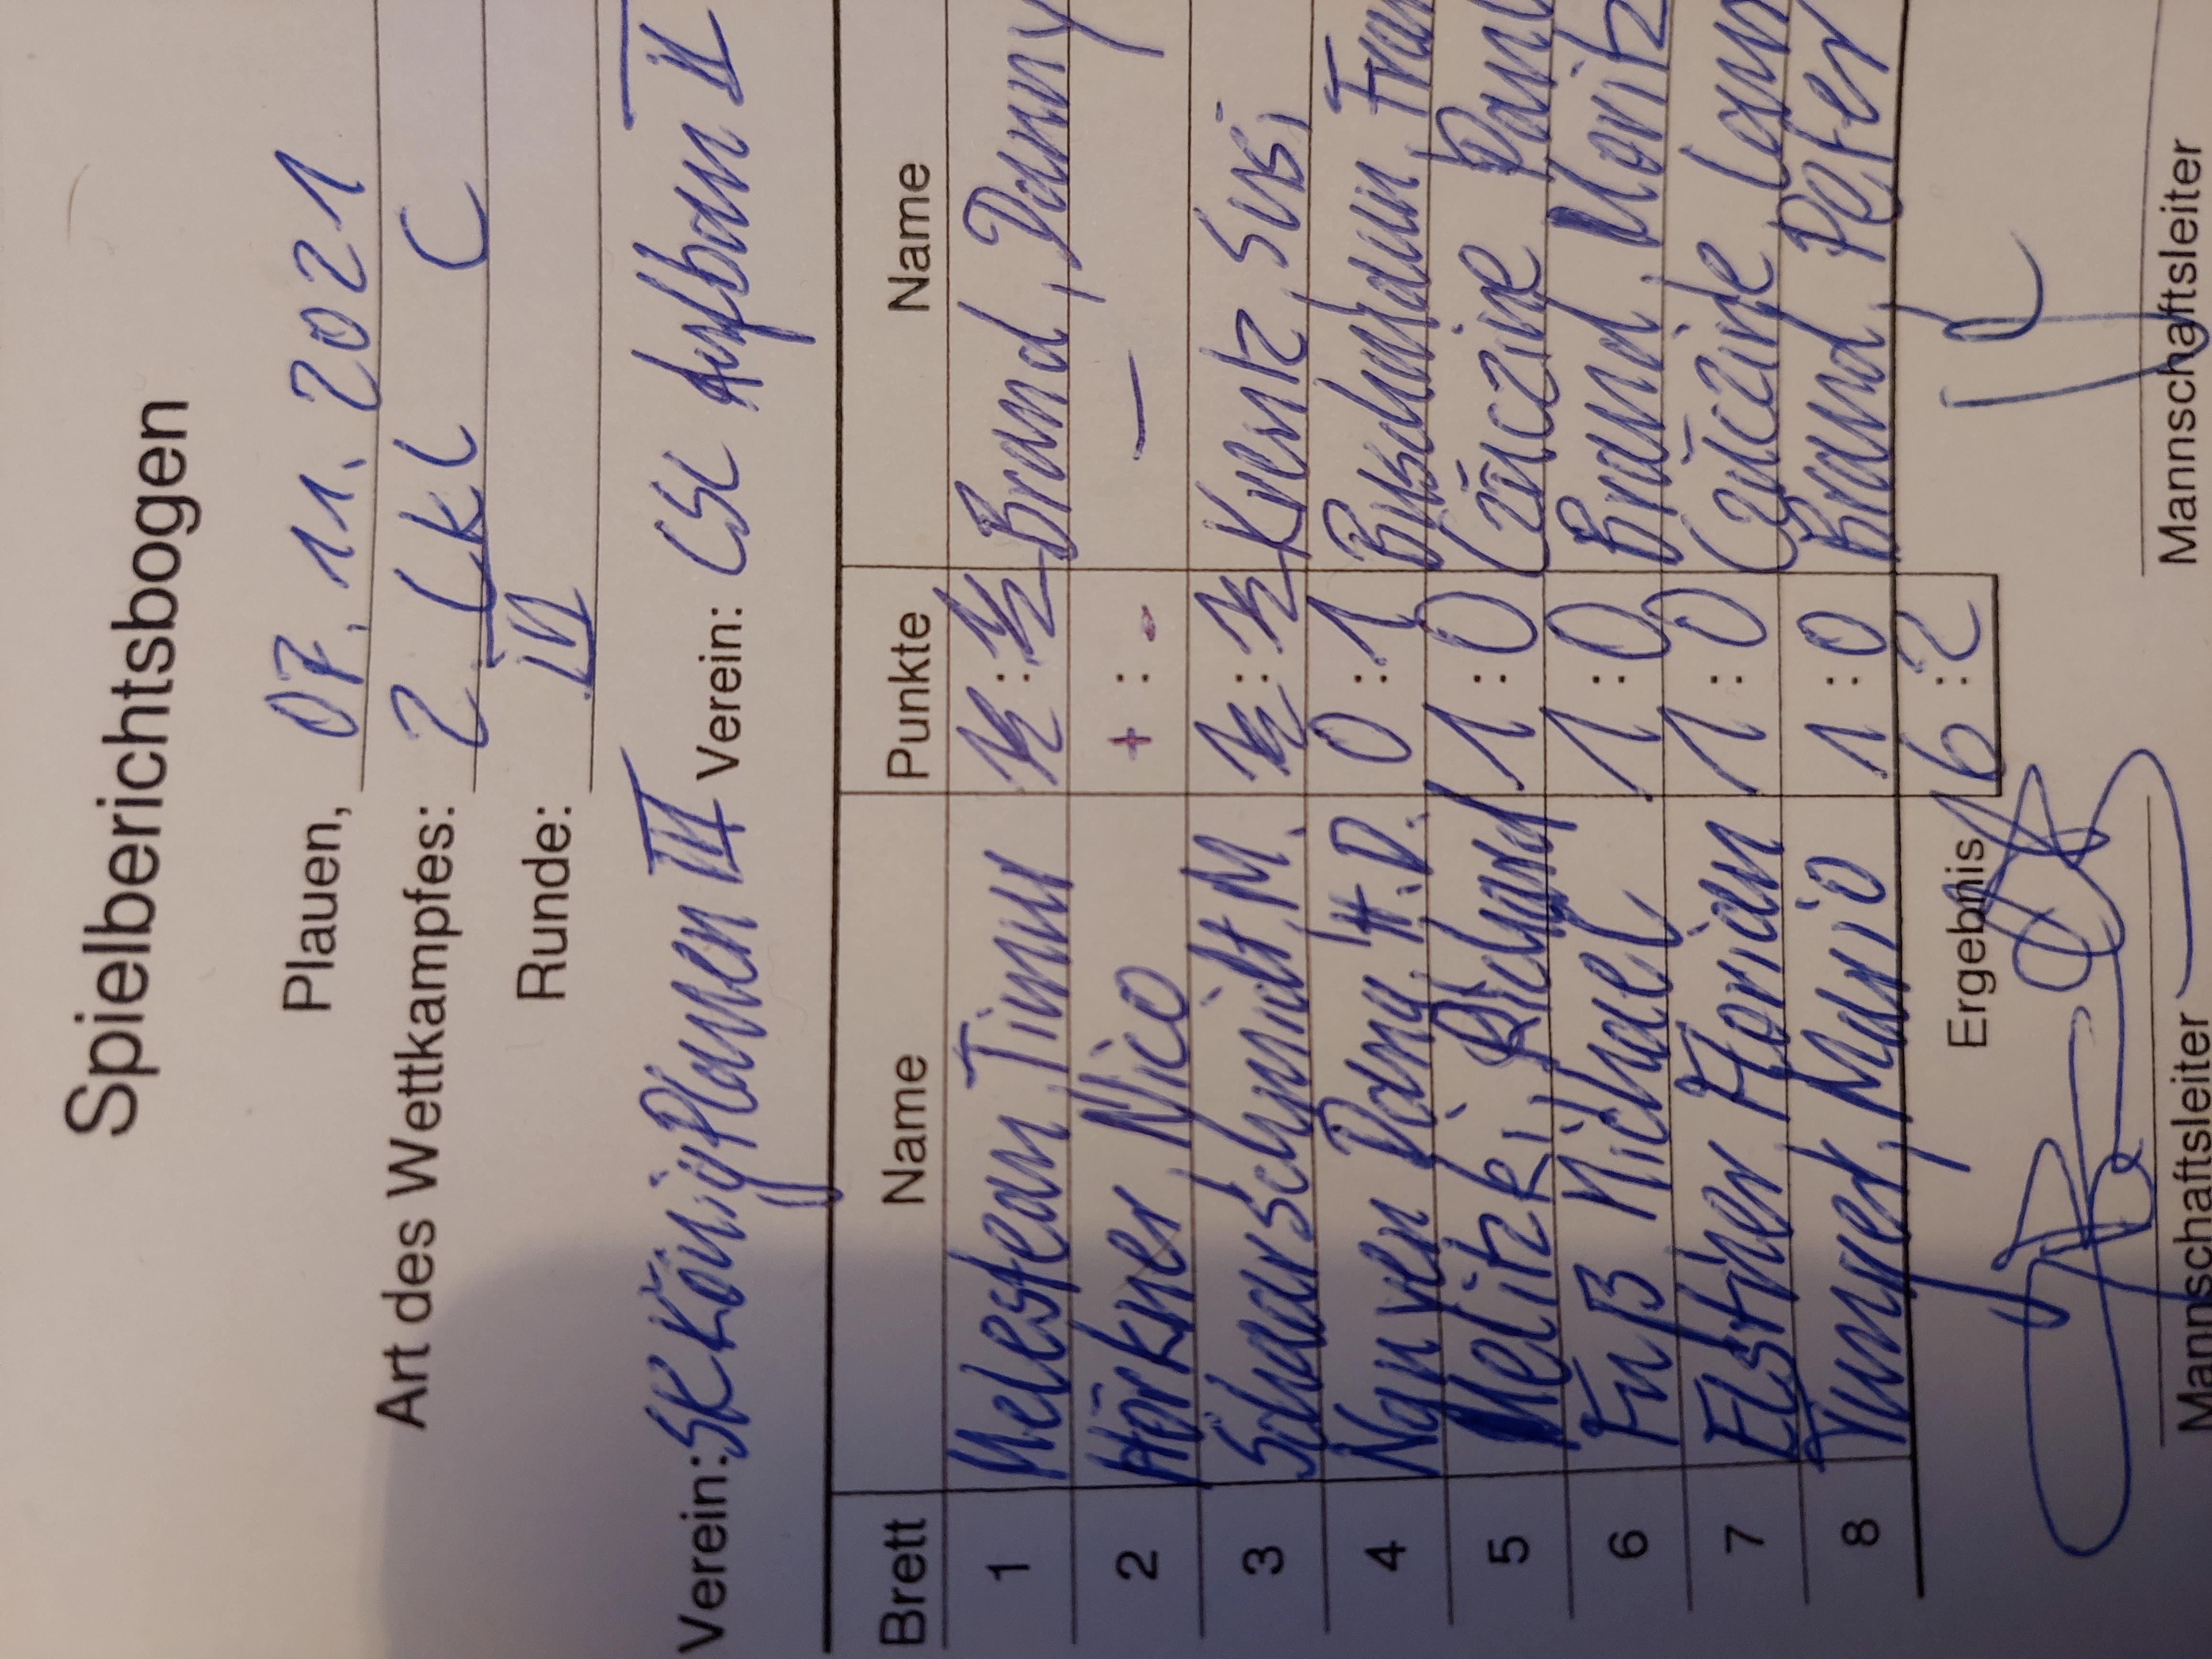 Spielberichtsbogen
Plauen, 07.11.2021
Art des Wettkampfes: 2. C
Runde: III
Verein: SK König Plauen III Verein: CSC Aufbau II
Brett Name Punkte Name
1 Timur ½ : ½ Brand, Danny
2 Hörkner, Nico + : - — —
3 Schaarschmidt M. ½ : ½ Krentz, Susi
4 H.D. 0 : 1
5 Melitzki, Richard 1 : 0
6 Fuß Michael 1 : 0 Brand, Moritz
7 Elstner Florian 1 : 0
8 Mario 1 : 0 Brand, Peter
Ergebnis 6 : 2
Mannschaftsleiter Mannschaftsleiter